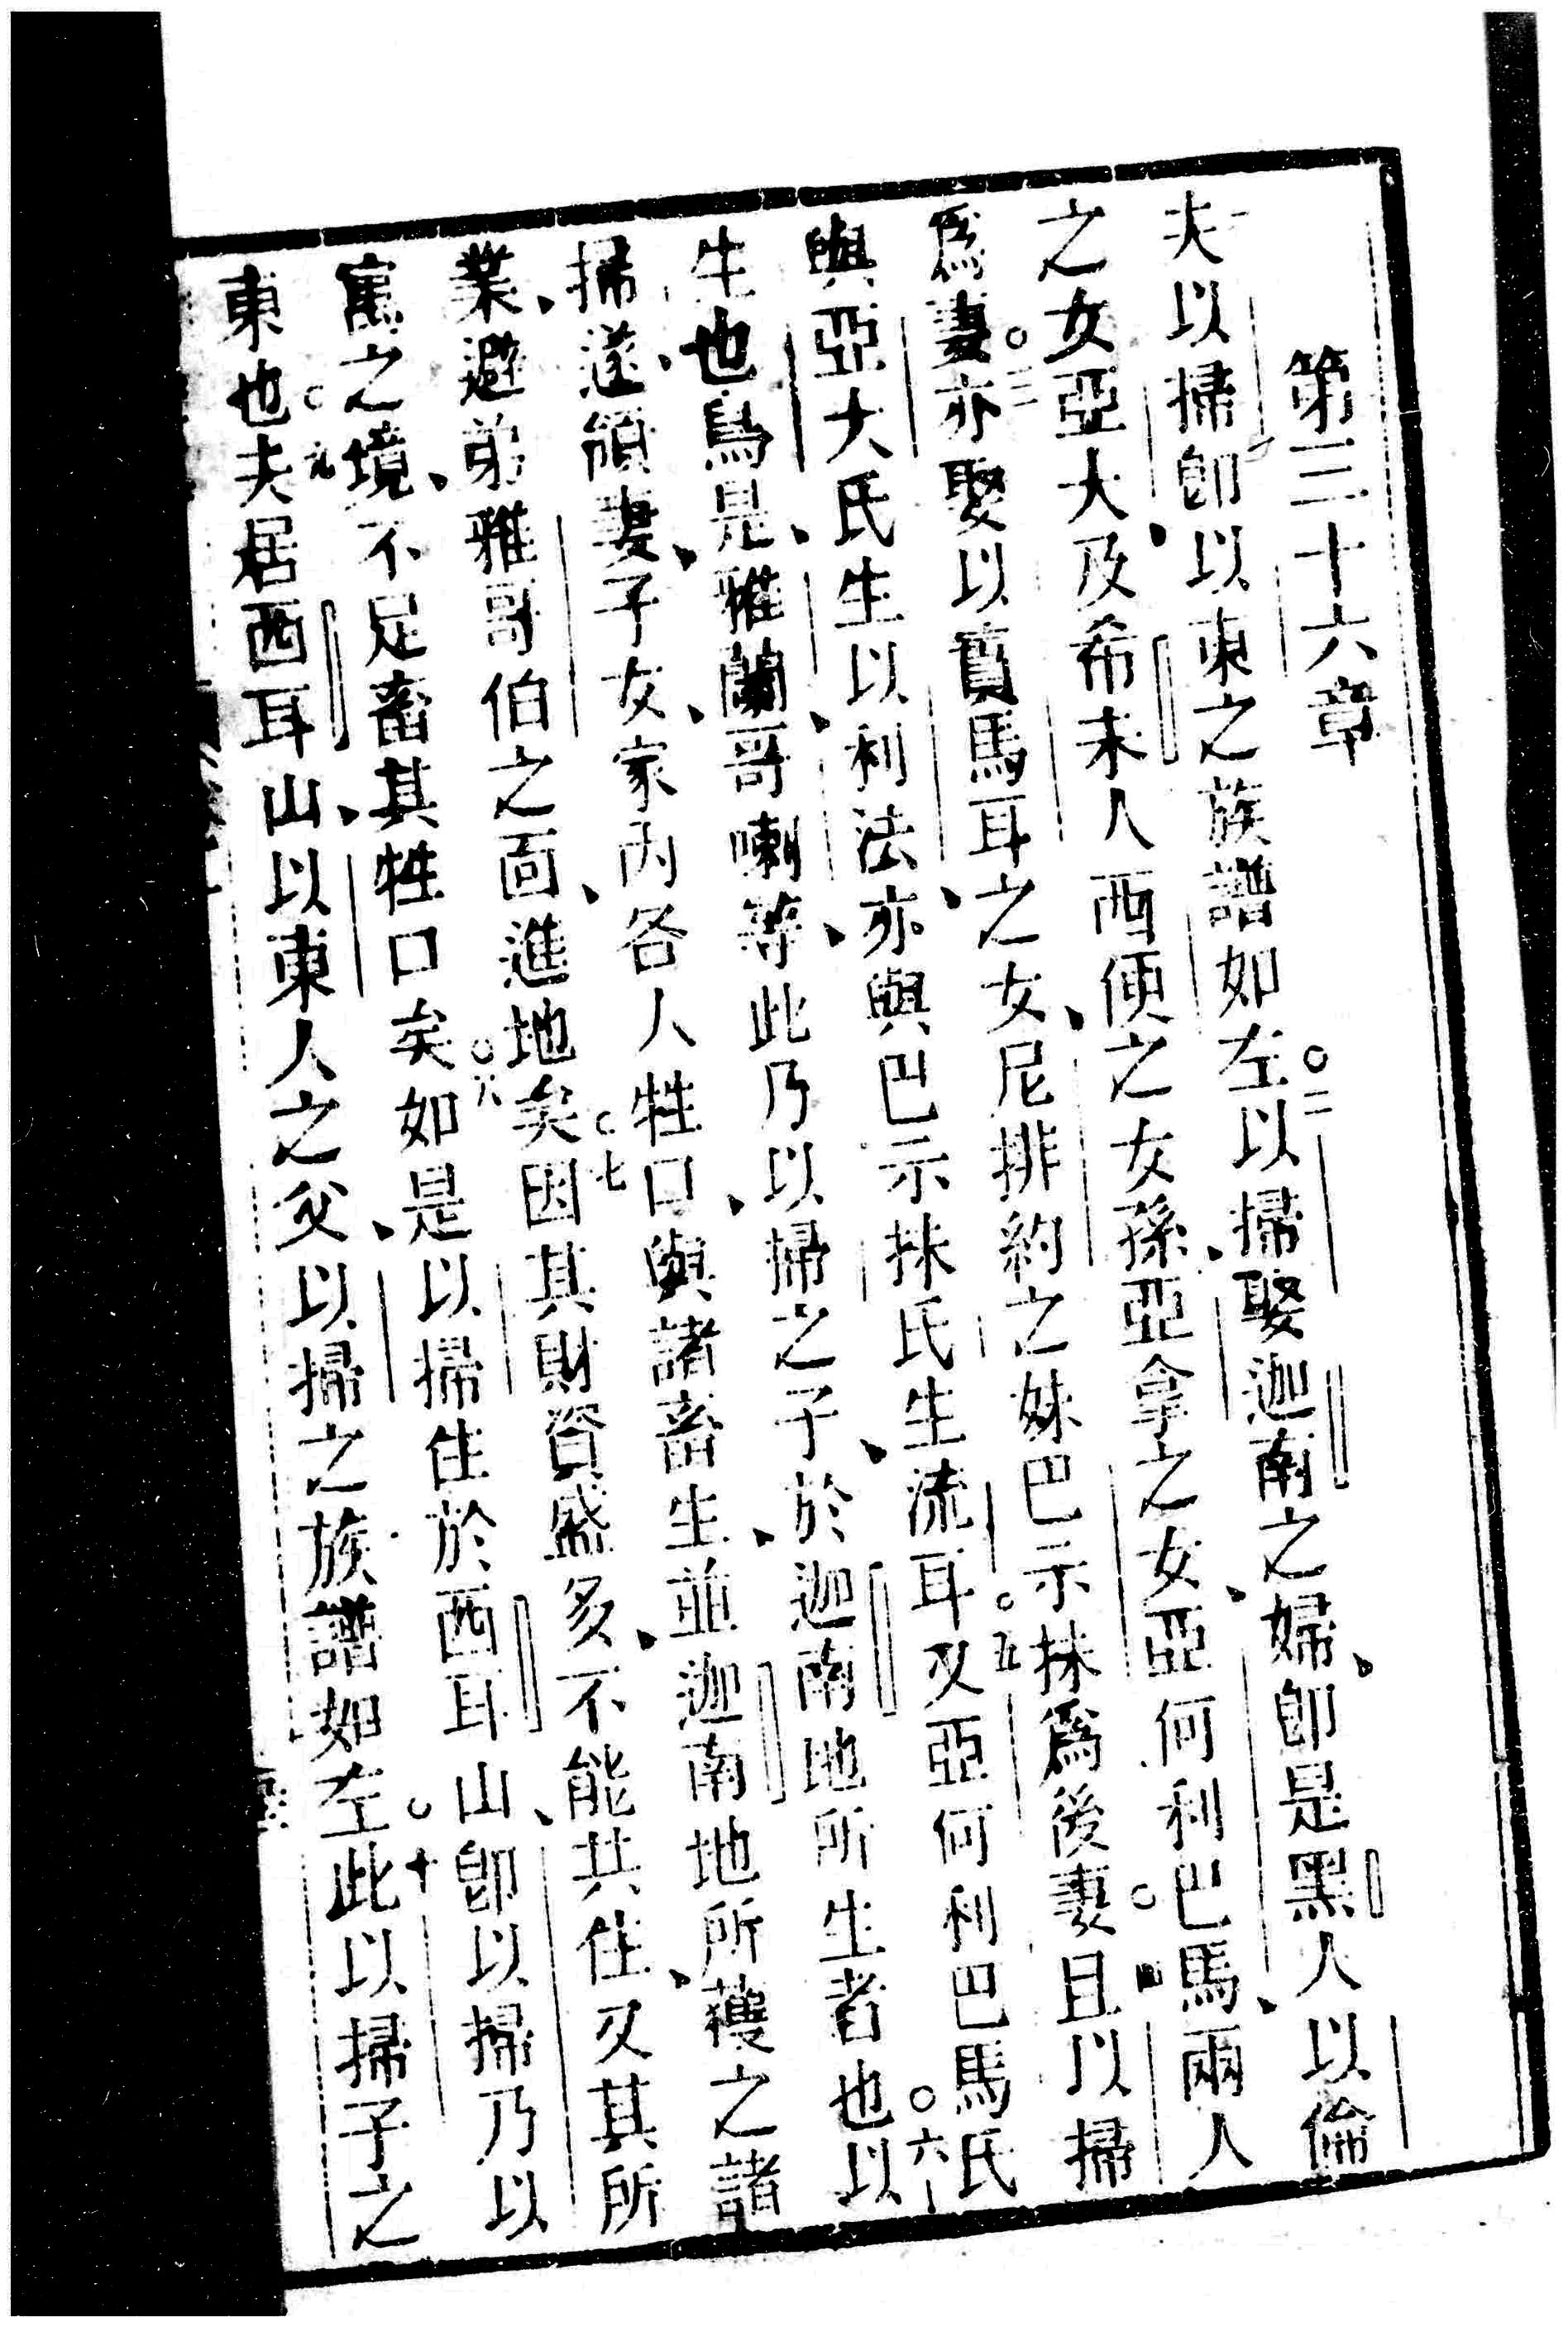 第三十六章
一夫以掃卽以東之族譜如左○二以掃娶迦南之婦、卽是黑人以倫
之女亞大、及希未人西便之女孫、亞拿之女、亞何利巴馬、兩人
爲妻○三亦娶以實馬耳之女、尼排約之妹巴示抹爲後妻○四且以掃
與亞大氏生以利法、亦與巴示抹氏生流耳○五又亞何利巴馬氏
生也烏是、雅蘭、哥喇等、此乃以掃之子、於迦南地所生者也○六以
掃遂、領妻、子女、家內各人牲口、與諸畜生、並迦南地所獲之諸
業、避弟雅哥伯之面、進地矣○七因其財資盛多、不能共住、又其所
寓之境、不足畜其牲口矣○八如是以掃住於西耳山、卽以掃乃以
東也○九夫居西耳山、以東人之父、以掃之族譜如左○十此以掃子之